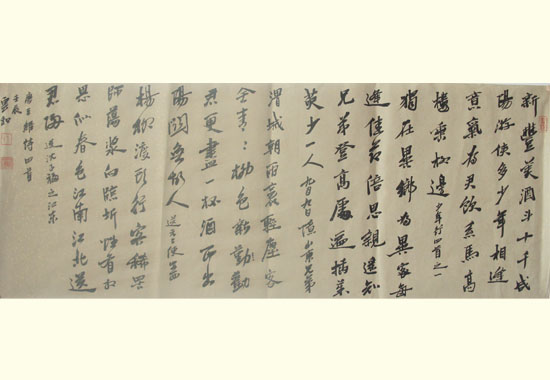 新豐美酒斗十千咸
陽游俠多少年相逢
意氣為君飲系馬高
樓垂柳邊 少年行四首之一
獨在異鄉為異客每
逢佳節倍思親遙知
兄弟登高處遍插茱
萸少一人 九月九日憶山東兄弟
渭城朝雨裛輕塵客
舍青〻柳色新勸
君更盡一杯酒西出
陽關無故人 送元二使安西
楊柳渡頭行客稀罟
師蕩槳向臨圻唯有相
思似春色江南江北送
君歸 送沈子福之江東
唐王維詩四首
壬辰
雲和